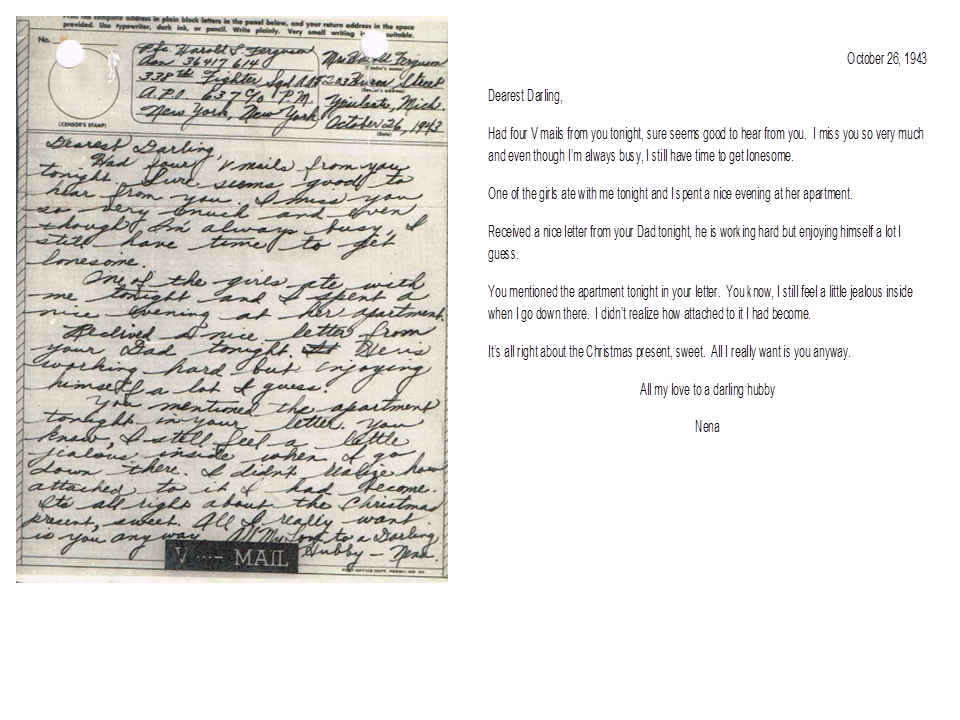 Print the complete address in plain block letters in the panel below, and your return address in the space
provided. Use typewriter, dark ink, or pencil. Write plainly. Very small writing is suitable.
No.
(CENSOR'S STAMP)
Pfc. Harold L. Ferguson
Asn 36417614
338th Fighter Sqd
A.P.O. 637 c/o P.M.
New York, New York
Mrs Harold Ferguson
(Sender's name)
203 Huron Street
(Sender's address)
Ypsilanti, Mich.
October 26, 1943
(Date)
Dearest Darling,
Had four V mails from you
tonight. Sure seems good to
hear from you. I miss you
so very much and even
though I'm always busy, I
still have time to get
lonesome.
One of the girls ate with
me tonight and I spent a
nice evening at her apartment.
Recieved a nice letter from
your Dad tonight. He is
working hard but enjoying
himself a lot I guess.
You mentioned the apartment
tonight in your letter. You
know, I still feel a little
jealous inside when I go
down there. I didn't realize how
attached to it I had become.
Its all right about the Christmas
present, sweet. All I really want
is you any way. All My Love to a Darling
Hubby – Nena.
V ...- MAIL
POST OFFICE DEPT. PERMIT NO.
October 26, 1943
Dearest Darling,
Had four V mails from you tonight, sure seems good to hear from you. I miss you so very much
and even though I'm always busy, I still have time to get lonesome.
One of the girls ate with me tonight and I spent a nice evening at her apartment.
Received a nice letter from your Dad tonight, he is working hard but enjoying himself a lot I
guess.
You mentioned the apartment tonight in your letter. You know, I still feel a little jealous inside
when I go down there. I didn't realize how attached to it I had become.
It's all right about the Christmas present, sweet. All I really want is you anyway.
All my love to a darling hubby
Nena